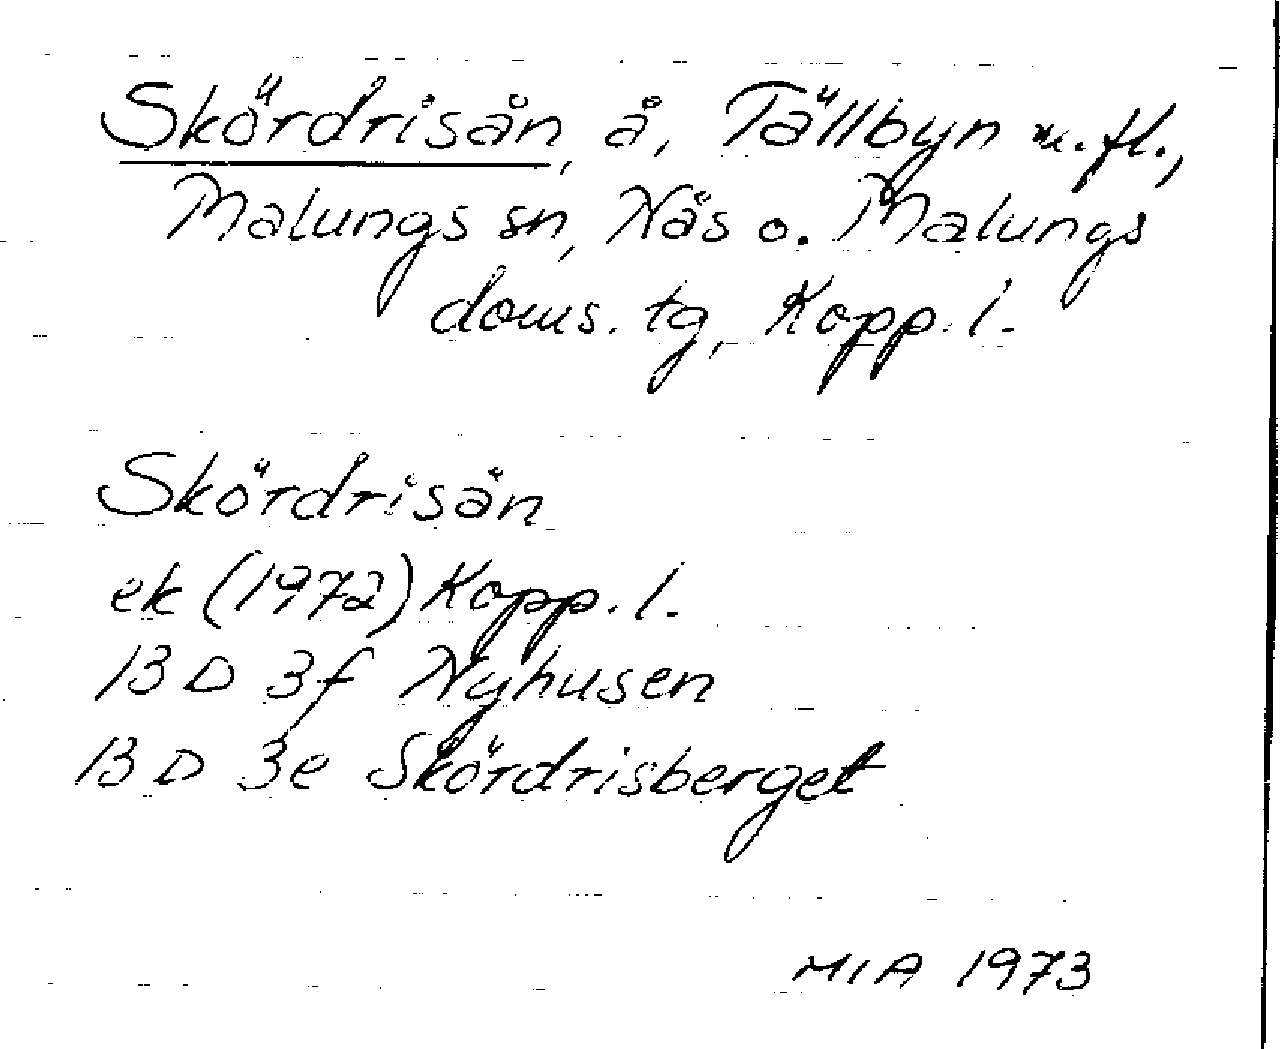 Skördrisån, å, Tällbyn m.fl.,
Malungs sn, Näs o. Malungs
doms. tg, Kopp. l.
Skördrisån
ek (1972) Kopp. l.
13 D 3f Nyhusen
13 D 3e Skördrisberget
MIA 1973